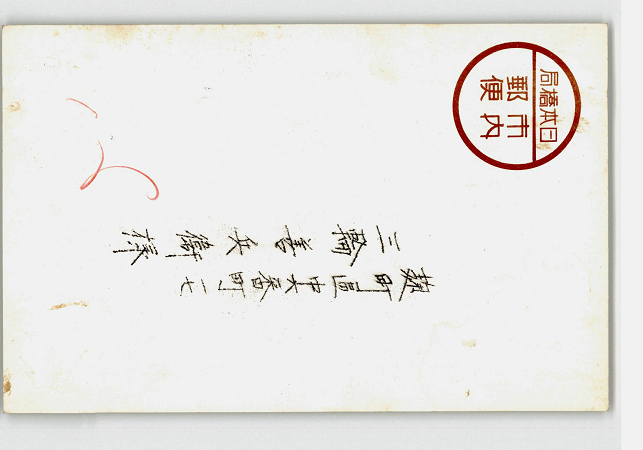 日本橋局
市内
郵便
麹町區中六番町一七
三輪善兵衛様